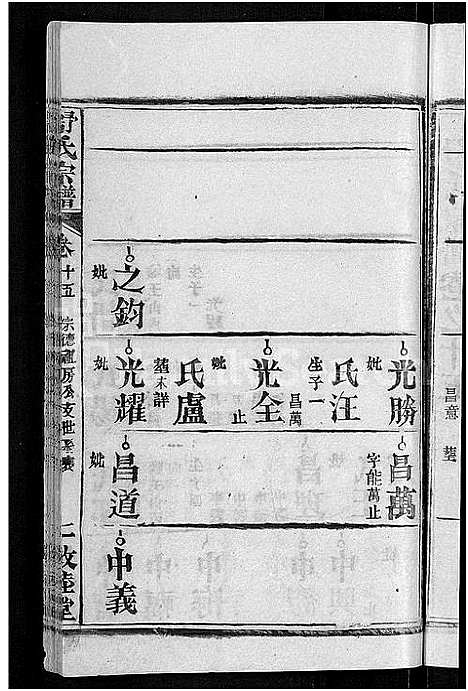 昌意
塟
光勝
妣
汪氏
生子一
昌萬
光全
止
妣
盧氏
塟未詳
光耀
妣
昌萬
字能萬止
昌道
妣
之鈞
妣
中義
舒氏宗譜
卷十五
宗德
房公支世系表
一
敦睦堂